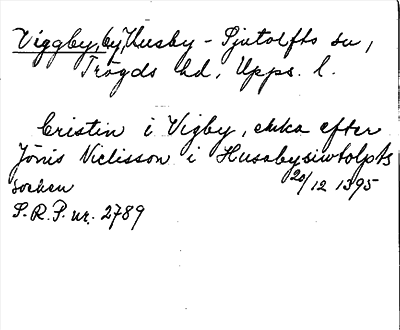 Viggby, by, Husby-Sjutolfts sn,
Trögds hd, Upps. l.
Cristin i Vigby, enka efter
Jönis Niclisson i Husabysiwtolpts
socken 20/12 1395
S.R.P. nr. 2789